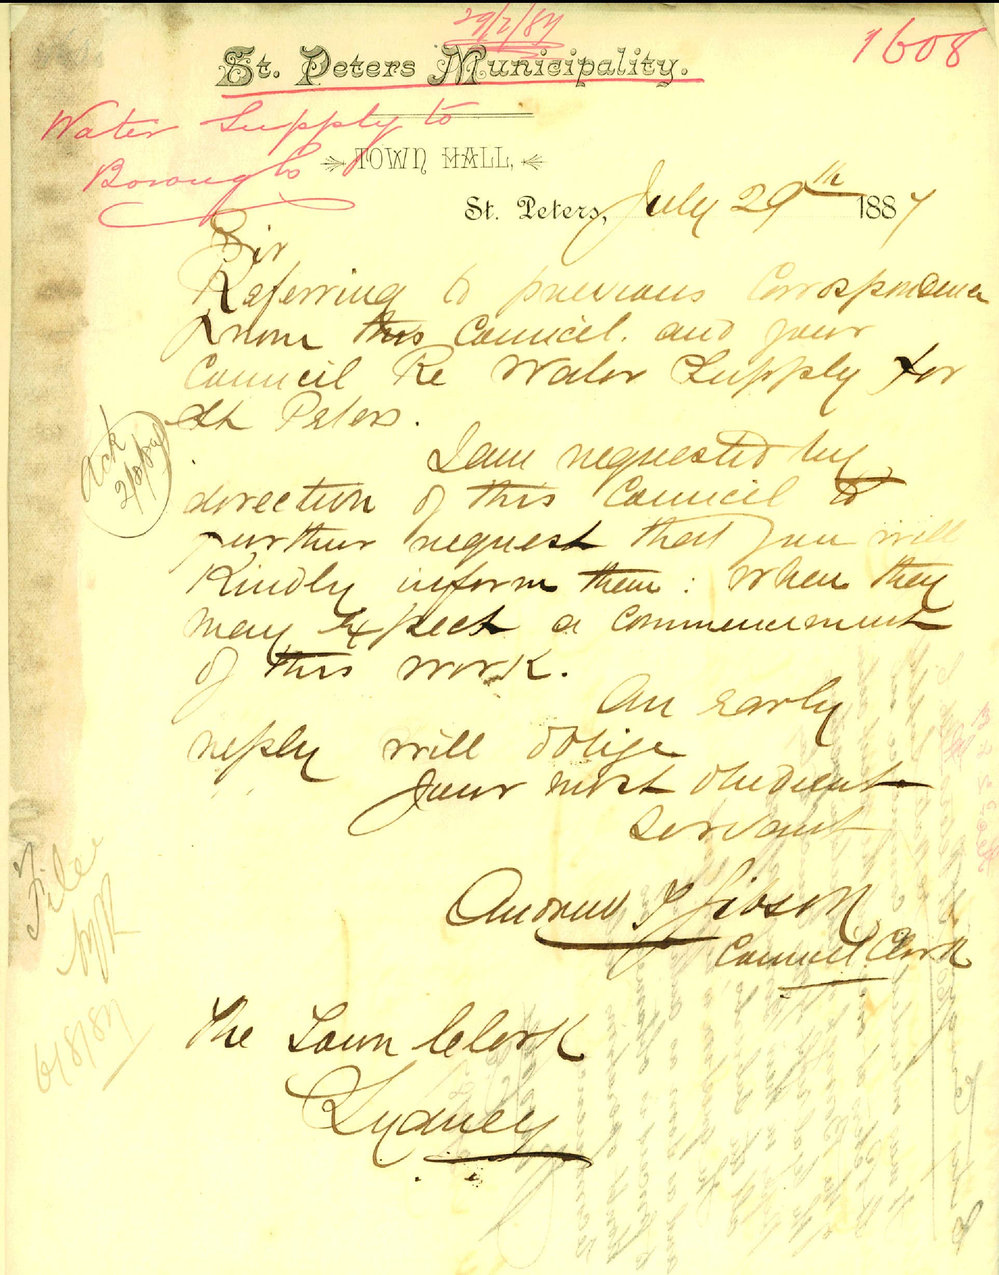 29/7/87
1608
St. Peters Municipality.
Water Supply to
Borough
TOWN HALL,
St. Peters, July 29th 1887
Sir
Referring to previous Correspondence
from this Council. and your
Council Re Water Supply for
St Peters.
I am requested by
direction of this Council to
further request that you will
Kindly inform them : when they
may Expect a commencement
of this work.
An Early
reply will oblige
Your most obedient
Servant
Andrew Gibson
Council Clerk
The Town Clerk
Sydney
Ack
2/8/87
File
6/8/87